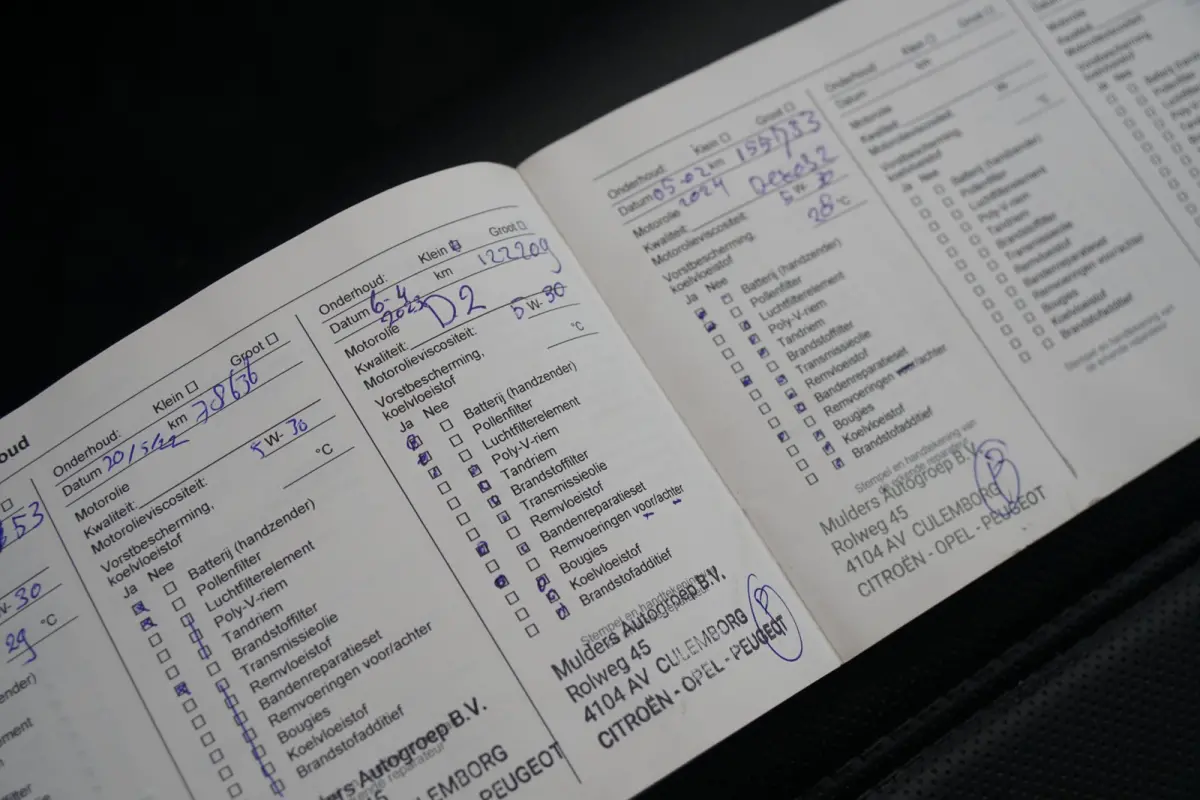 oud
53
W- 30
29 °C
ender)
ement
filter
Onderhoud: Klein Groot
Datum 20/5/22 km 78636
Motorolie
Kwaliteit:
Motorolieviscositeit: 5 W- 30
Vorstbescherming, °C
koelvloeistof
Ja Nee
Batterij (handzender)
Pollenfilter
Luchtfilterelement
Poly-V-riem
Tandriem
Brandstoffilter
Transmissieolie
Remvloeistof
Bandenreparatieset
Remvoeringen voor/achter
Bougies
Koelvloeistof
Brandstofadditief
ders Autogroep B.V.
ende reparateur
45
ULEMBORG
PEUGEOT
Onderhoud: Klein Groot
Datum 6-4 km 122209
2023
Motorolie D2
Kwaliteit:
Motorolieviscositeit: 5 W- 30
Vorstbescherming, °C
koelvloeistof
Ja Nee
Batterij (handzender)
Pollenfilter
Luchtfilterelement
Poly-V-riem
Tandriem
Brandstoffilter
Transmissieolie
Remvloeistof
Bandenreparatieset
Remvoeringen voor/achter
Bougies
Koelvloeistof
Brandstofadditief
Stempel en handtekening
Mulders Autogroep B.V.
Rolweg 45
4104 AV CULEMBORG
CITROËN - OPEL - PEUGEOT
Onderhoud: Klein Groot
Datum 05-02 km 155783
2024
Motorolie
Kwaliteit:
Motorolieviscositeit: 5 W- 30
Vorstbescherming, 28 °C
koelvloeistof
Ja Nee
Batterij (handzender)
Pollenfilter
Luchtfilterelement
Poly-V-riem
Tandriem
Brandstoffilter
Transmissieolie
Remvloeistof
Bandenreparatieset
Remvoeringen voor/achter
Bougies
Koelvloeistof
Brandstofadditief
Stempel en handtekening van
Mulders Autogroep B.V.
Rolweg 45
4104 AV CULEMBORG
CITROËN - OPEL - PEUGEOT
Onderhoud: Klein Groot
Datum km
Motorolie
Kwaliteit:
Motorolieviscositeit: W-
Vorstbescherming, °C
koelvloeistof
Ja Nee
Batterij (handzender)
Pollenfilter
Luchtfilterelement
Poly-V-riem
Tandriem
Brandstoffilter
Transmissieolie
Remvloeistof
Bandenreparatieset
Remvoeringen voor/achter
Bougies
Koelvloeistof
Brandstofadditief
Stempel en handtekening van
Motorolie
Kwaliteit:
Motorolieviscositeit:
Vorstbescherming,
koelvloeistof
Ja Nee